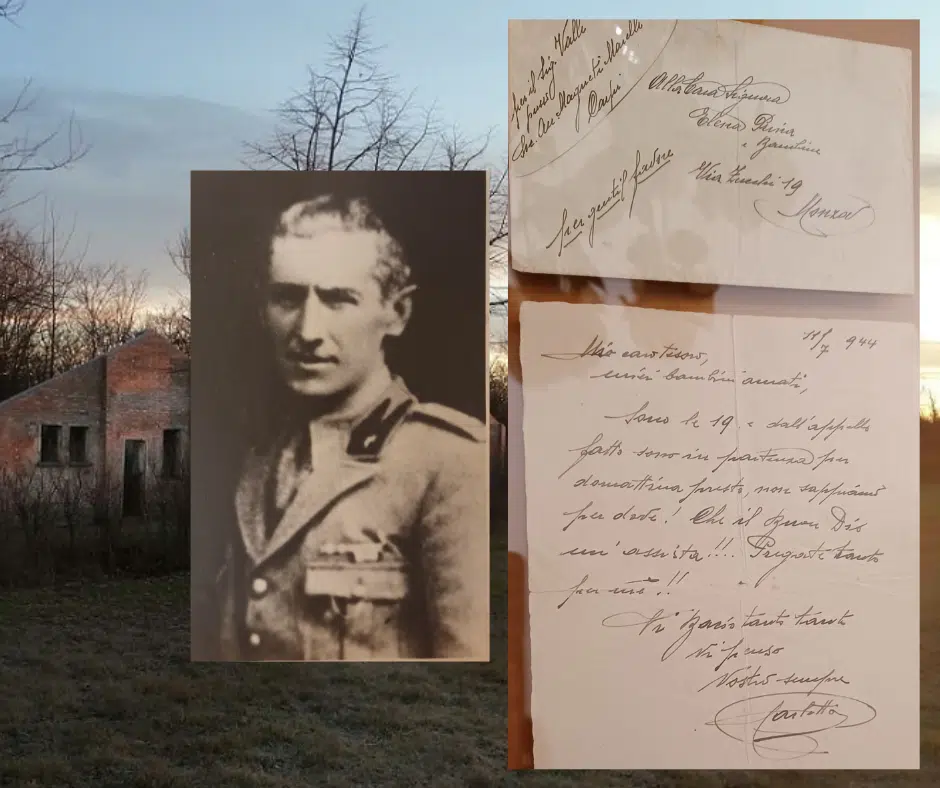 per il Sig. Valle
presso
Soc. An. Magneti Marelli
Carpi
per gentil favore
Alla Cara Signora
Elena Prina
e Bambini
Via Zucchi 19
Monza
11/7 944
Mio caro tesoro,
miei bambini amati,
Sono le 19 e dall'appello
fatto sono in partenza per
domattina presto, non sappiamo
per dove! Che il Buon Dio
m'assista!!!. Pregate tanto
per me!!
Vi Bacio tanto tanto
Vi penso
Vostro sempre
Carletto